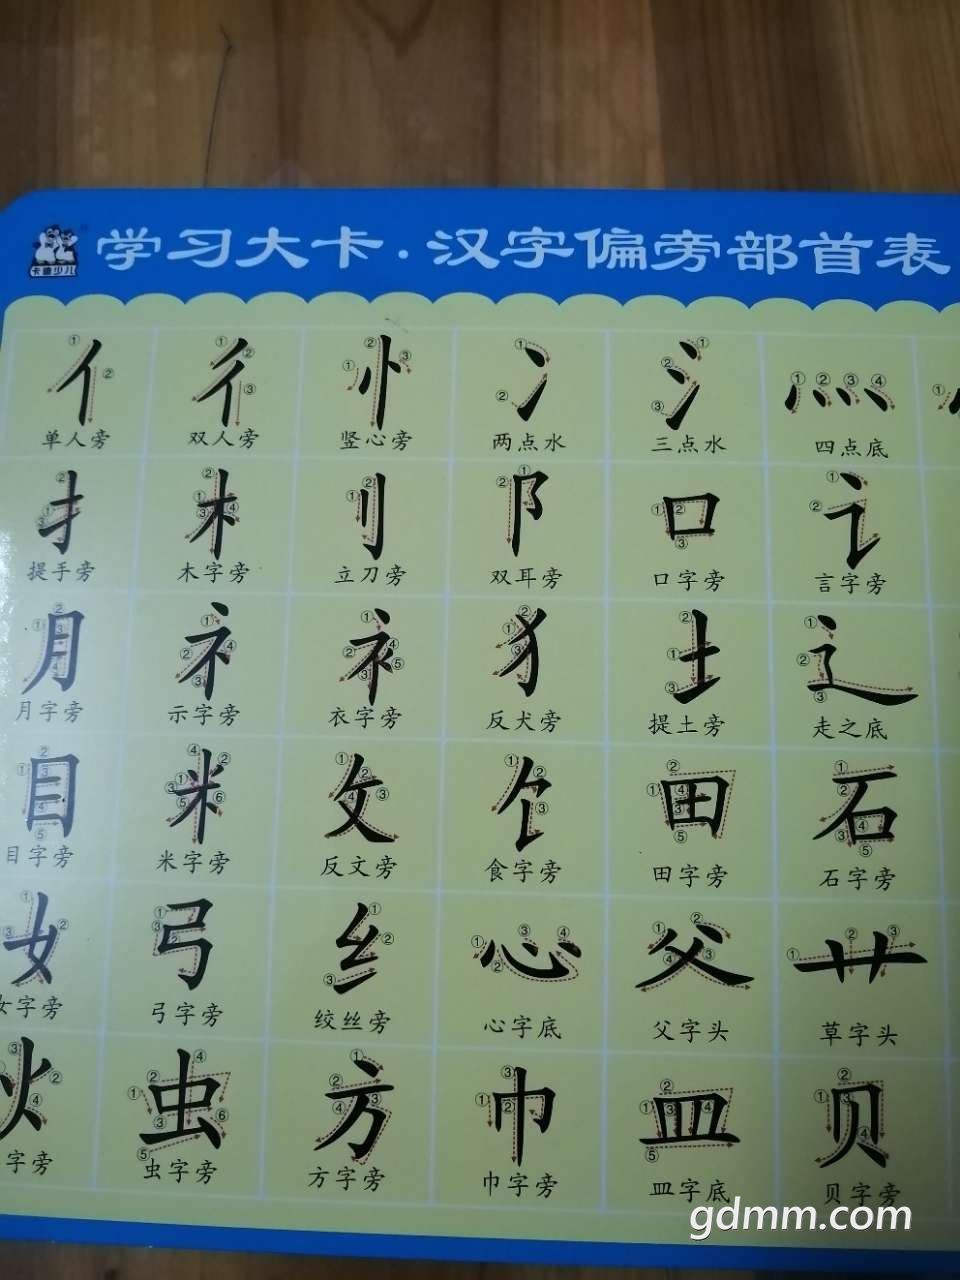 卡通少儿
学习大卡·汉字偏旁部首表
亻 彳 忄 冫 氵 灬
单人旁 双人旁 竖心旁 两点水 三点水 四点底
扌 木 刂 阝 口 讠
提手旁 木字旁 立刀旁 双耳旁 口字旁 言字旁
月 礻 衤 犭 土 辶
月字旁 示字旁 衣字旁 反犬旁 提土旁 走之底
目 米 攵 饣 田 石
目字旁 米字旁 反文旁 食字旁 田字旁 石字旁
女 弓 纟 心 父 艹
女字旁 弓字旁 绞丝旁 心字底 父字头 草字头
火 虫 方 巾 皿 贝
字旁 虫字旁 方字旁 巾字旁 皿字底 贝字旁
gdmm.com